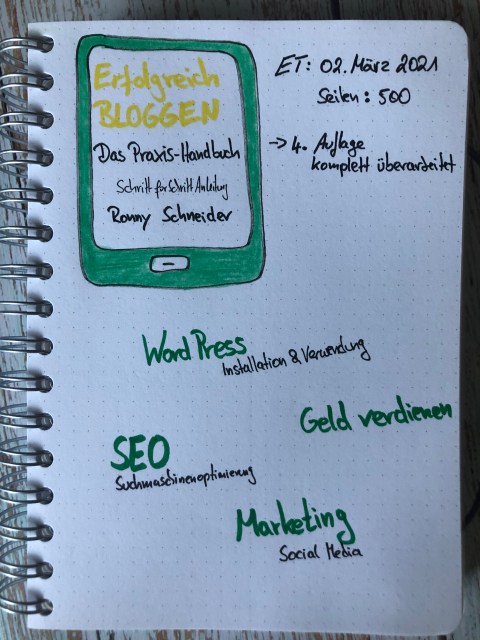 Erfolgreich
BLOGGEN
Das Praxis-Handbuch
Schritt für Schritt Anleitung
Ronny Schneider
ET: 02. März 2021
Seiten: 500
-> 4. Auflage
komplett überarbeitet
WordPress
Installation & Verwendung
Geld verdienen
SEO
Suchmaschinenoptimierung
Marketing
Social Media